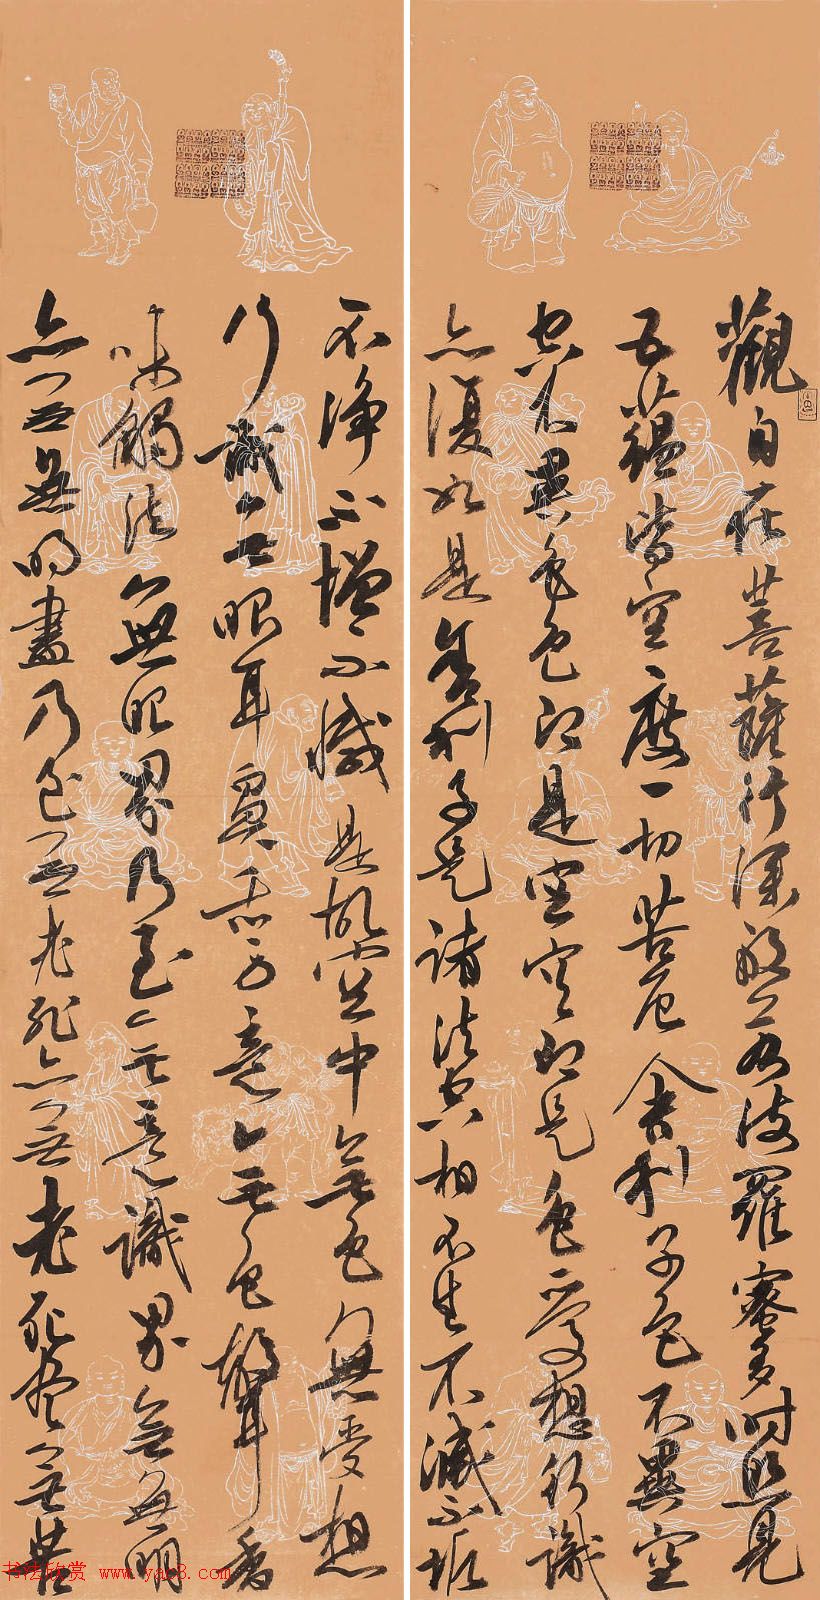 觀自在菩薩行深般若波羅蜜多時照見
五蘊皆空度一切苦厄舍利子色不異空
空不異色色即是空空即是色受想行識
亦復如是舍利子是諸法空相不生不滅不垢
不淨不增不減是故空中無色無受想
行識無眼耳鼻舌身意無色聲香
味觸法無眼界乃至無意識界無無明
亦無無明盡乃至無老死亦無老死盡無苦
书法欣赏 www.yac8.com